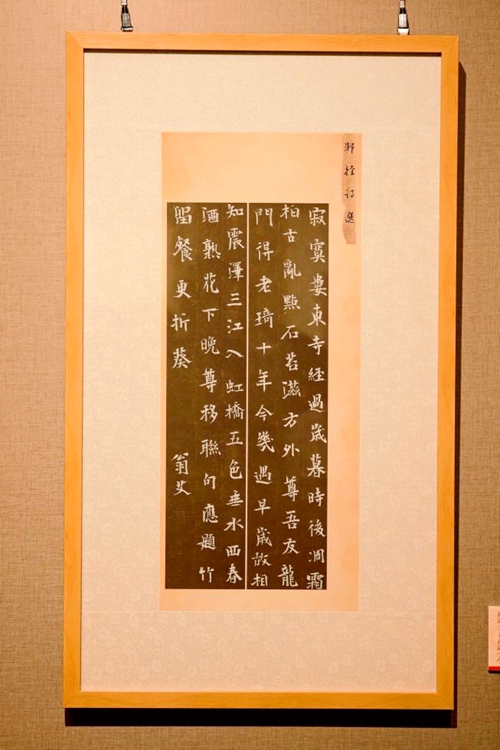 寂寞婁東寺經過歲暮時後凋霜
柏古亂點石苔滋方外尊吾友龍
門得老琦十年今幾遇早歲故相
知震澤三江入虹橋五色垂水西春
酒熟花下晚尊移聯句應題竹
留餐更折葵
翁